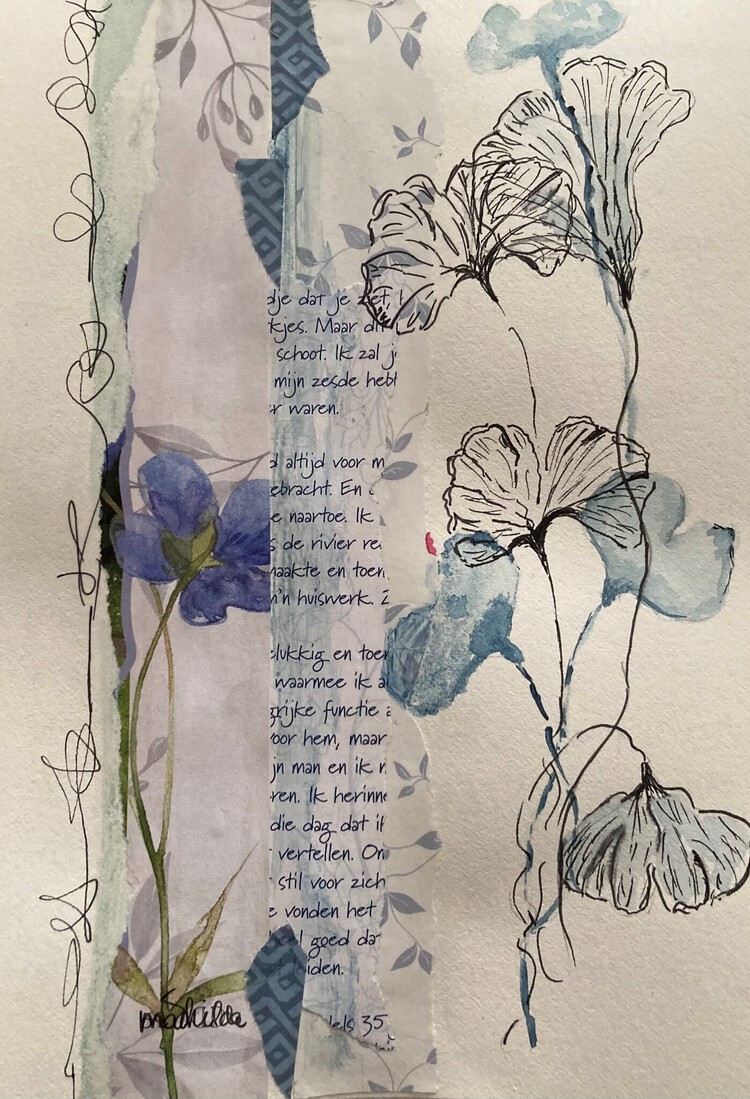 dje dat je ziet,
kjes. Maar di
schoot. Ik zal j
mijn zesde heb
er waren.
d altijd voor m
ebracht. En
e naartoe. Ik
s de rivier re
maakte en toen
n'n huiswerk. Z
elukkig en toen
waarmee ik a
grijke functie a
voor hem, maar
jn man en ik
ren. Ik herinne
die dag dat i
vertellen. On
stil voor zich
e vonden het
heel goed da
iden.
els 35